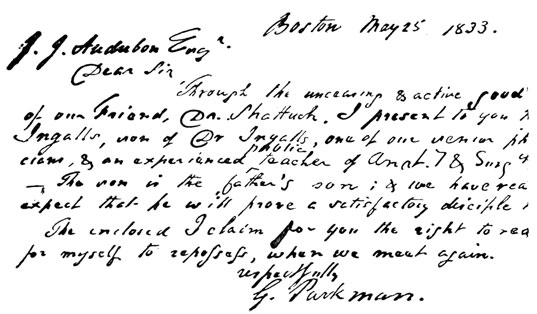 Boston May 25 1833.
J. J. Audubon Esqr.
Dear Sir
Through the unceasing & active good
of our Friend, Dr. Shattuck, I present to you
Ingalls, son of Dr Ingalls, one of our senior ph
public
cians, & an experienced teacher of Anat. & Surg
— The son is the father's son; & we have rea
expect that he will prove a satisfactory disciple
The enclosed I claim for you the right to rea
for myself to repossess, when we meet again.
respectfully
G. Parkman.